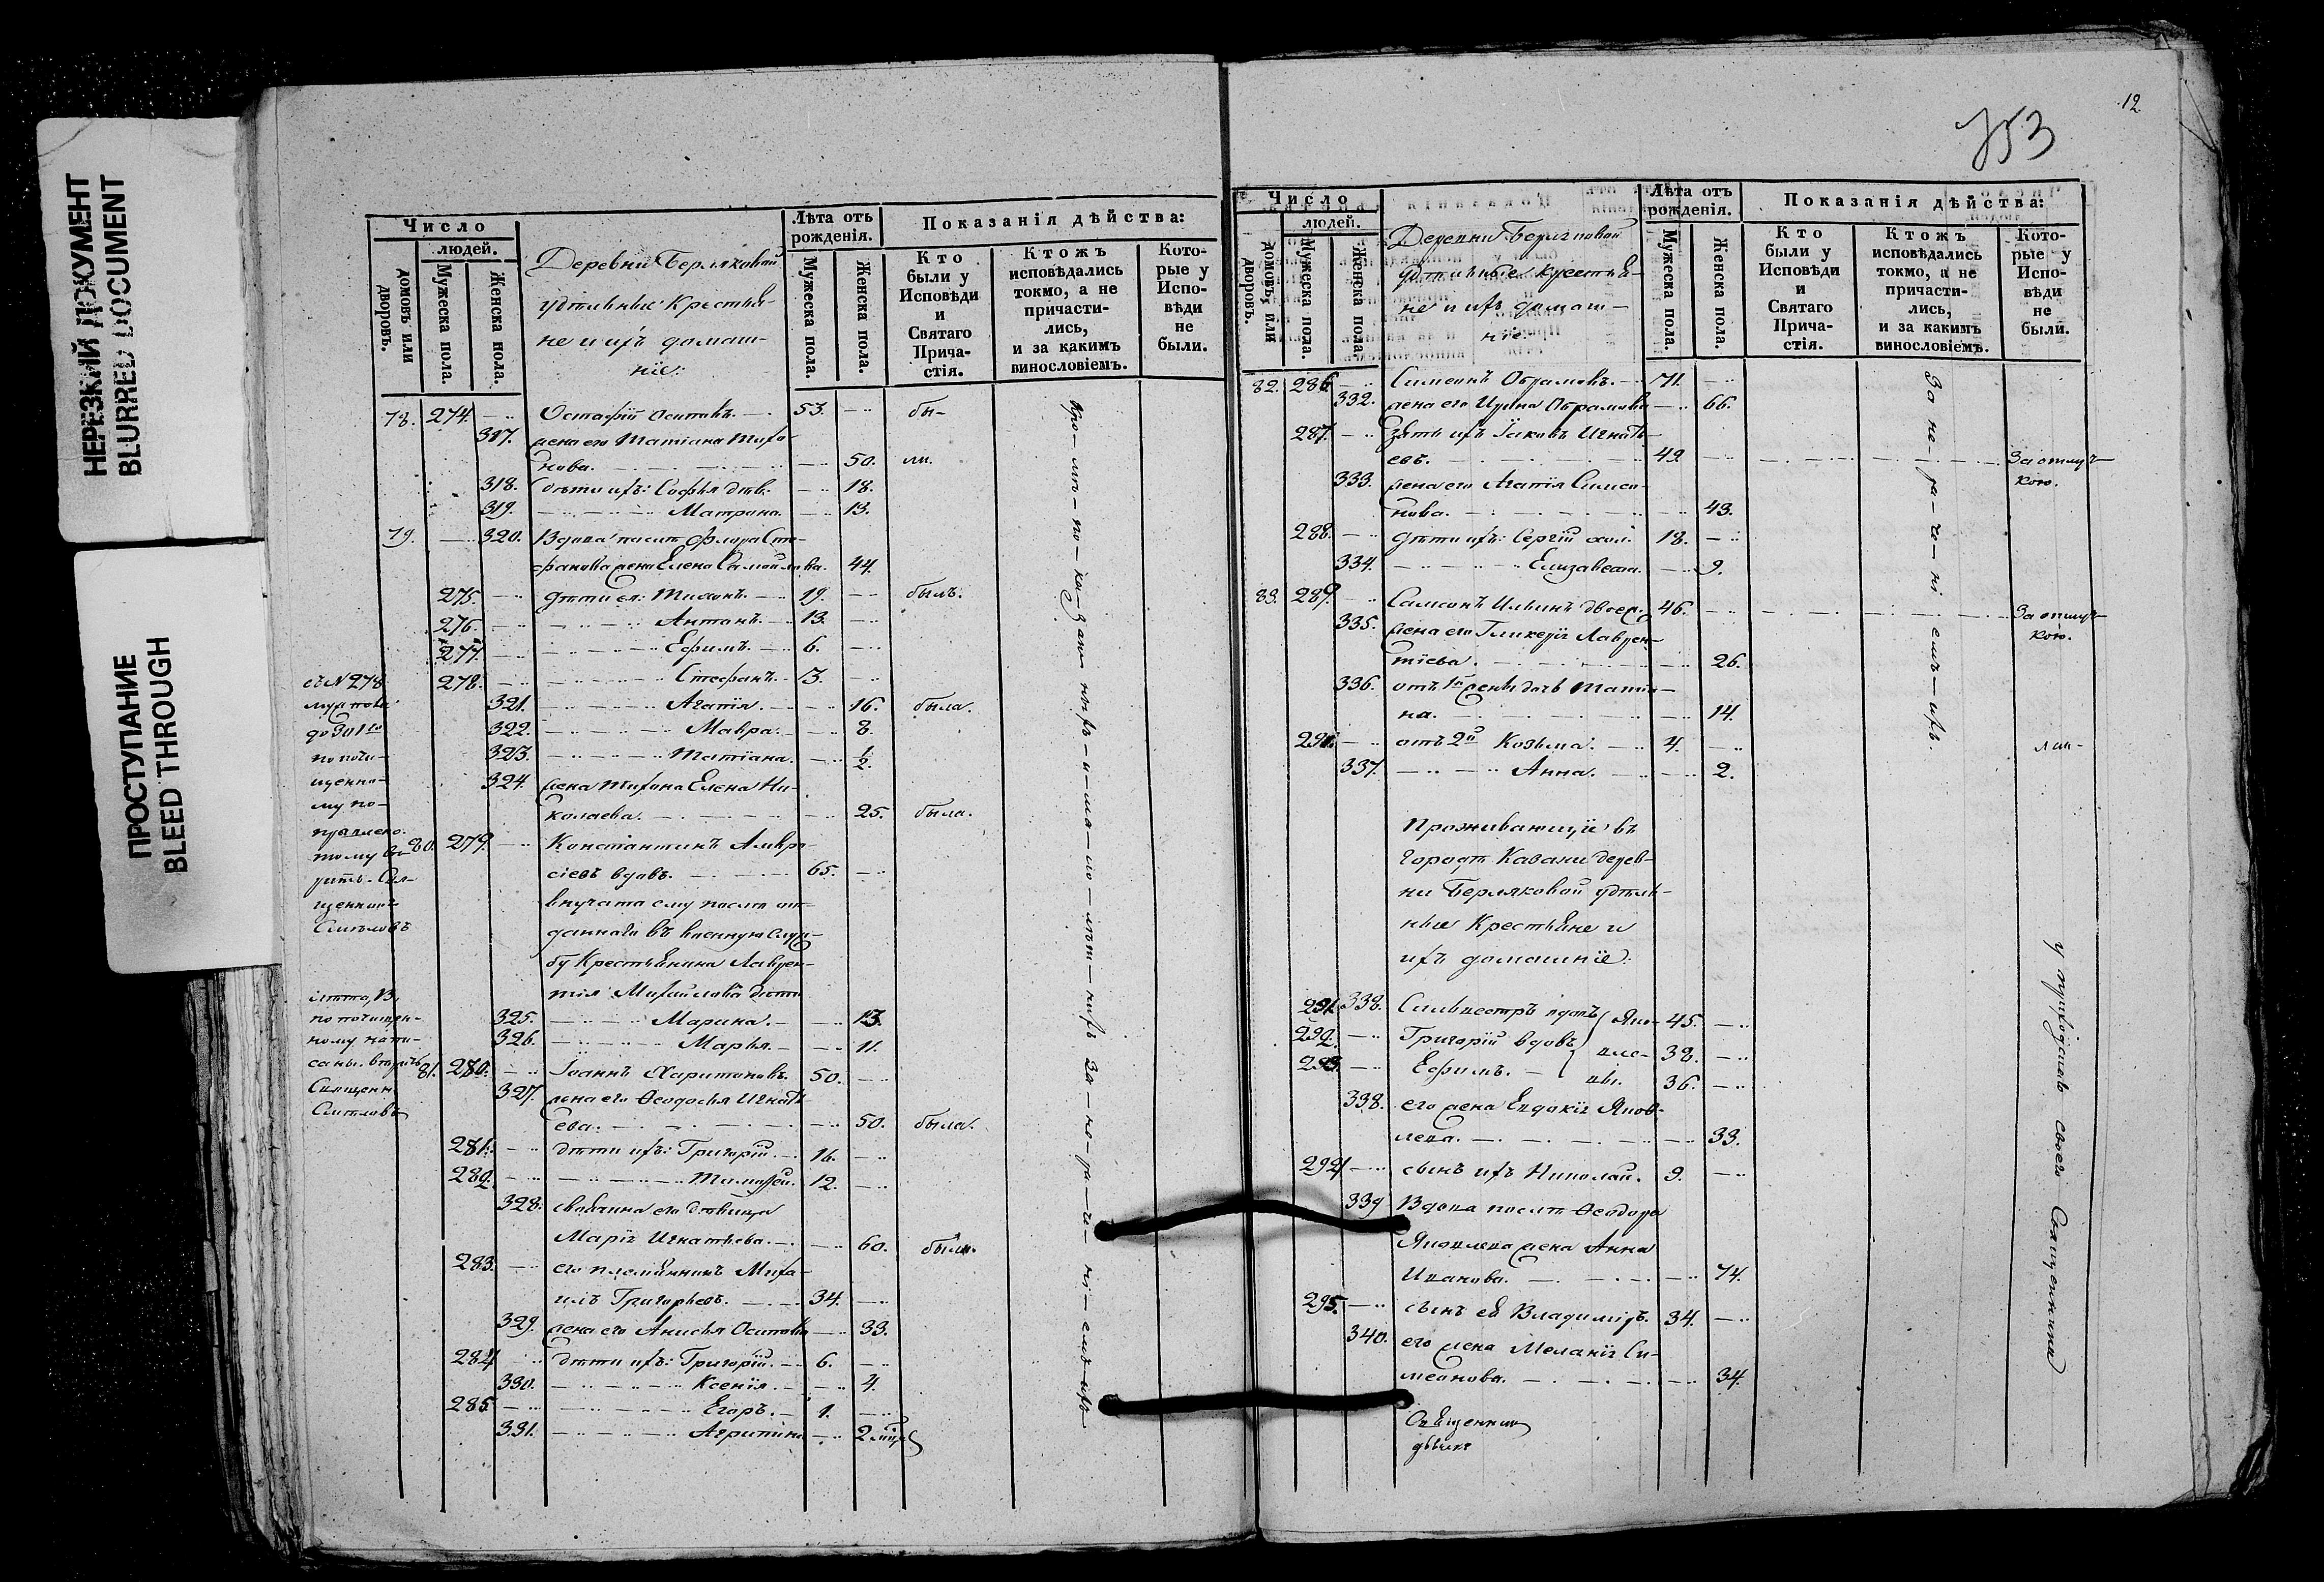 НЕРЕЗКИЙ ДОКУМЕНТ
BLURRED DOCUMENT
ПРОСТУПАНИЕ
BLEED THROUGH
Число
людей.
домовъ или дворовъ.
Мужеска пола.
Женска пола.
Деревни Берляковой
удѣльные Крестья-
не и ихъ домаш-
ніе:
Лѣта отъ рожденія.
Мужеска пола.
Женска пола.
Показанія дѣйства:
Кто были у Исповѣди и Святаго Прича-стія.
Ктожъ исповѣдались токмо, а не причасти-лись, и за какимъ винословіемъ.
Кото-рые у Испо-вѣди не были.
78. 274. Остафій Осиповъ. 53. бы-
317. жена его Татіана Тихо-
нова. 50. ли.
318. дѣти ихъ: Софья дѣв. 18.
319. Матрона. 13.
79. 320. Вдова послѣ Флора Сте-
фанова жена Елена Самойлова. 44.
275. дѣти ея: Тихонъ. 19. былъ.
276. Антонъ. 13.
277. Ефимъ. 6.
278. Стефанъ. 3.
321. Агапія. 16. была.
322. Мавра. 8.
323. Татіана. ½.
324. жена Тихона Елена Ни-
колаева. 25. была.
80. 279. Константинъ Амвро-
сіевъ вдовъ. 65.
внучата ему послѣ от-
даннаго въ военную служ-
бу Крестьянина Лаврен-
тія Михайлова дѣти
325. Марина. 13.
326. Марья. 11.
81. 280. Іоаннъ Харитоновъ. 50.
327. жена его Ѳеодосья Игнать-
ева. 50. была.
281. дѣти ихъ: Григорій. 16.
282. Тимоѳей. 12.
328. своячина его дѣвица
Марія Игнатьева. 60. была.
283. его племянникъ Миха-
илъ Григорьевъ. 34.
329. жена его Анисья Осипова 33.
284. дѣти ихъ: Григорій. 6.
330. Ксенія. 4.
285. Егоръ. 1.
331. Агрипина 2 мѣс.
съ N 278
до 301го
по почи-
щенно-
му по-
правлено.
тому вѣ-
рить. Свя-
щенникъ
по почищен-
ному напи-
саны. вѣрить
Священн.
За-не-ра-че-ні-емъ-ихъ
12.
753
Число
людей.
домовъ, или дворовъ.
Мужеска пола.
Женска пола.
Деревни Берляковой
удѣльные крестья-
не и ихъ домаш-
ніе
Лѣта отъ рожденія.
Мужеска пола.
Женска пола.
Показанія дѣйства:
Кто были у Исповѣди и Святаго Прича-стія.
Ктожъ исповѣдались токмо, а не причасти-лись, и за какимъ винословіемъ.
Кото-рые у Испо-вѣди не были.
82. 286. Симеонъ Обрамовъ. 71.
332. жена его Ирина Обрамова 66.
287. зять ихъ Іаковъ Игнать-
евъ. 49 За отлуч-
кою.
333. жена его Агапія Симео-
нова. 43.
288. дѣти ихъ: Сергій хол. 18.
334. Елизавета. 9.
83. 289. Самсонъ Ильинъ двоеж. 46. За отлуч-
кою.
335. жена его Гликерія Лаврен-
тіева. 26.
336. отъ 1й жены дочь Татіа-
на. 14.
290. отъ 2й Козьма. 4.
337. Анна. 2.
За не-ра-че-ні-емъ-ихъ.
Проживающіе въ
городѣ Казани дерев-
ни Берляковой удѣль-
ные Крестьяне и
ихъ домашніе:
291. 338. Сильвестръ вдовъ Яко- 45.
292. Григорій вдовъ вле- 38.
293. Ефимъ. вы. 36.
338. его жена Евдокія Яков-
лева. 33.
294 сынъ ихъ Николай. 9.
339 Вдова послѣ Ѳеодора
Яковлева жена Анна
Иванова. 74.
295. сынъ ея Владимиръ. 34.
340. его жена Меланія Си-
меонова. 34.
у приходскаго своего Священника
Священник